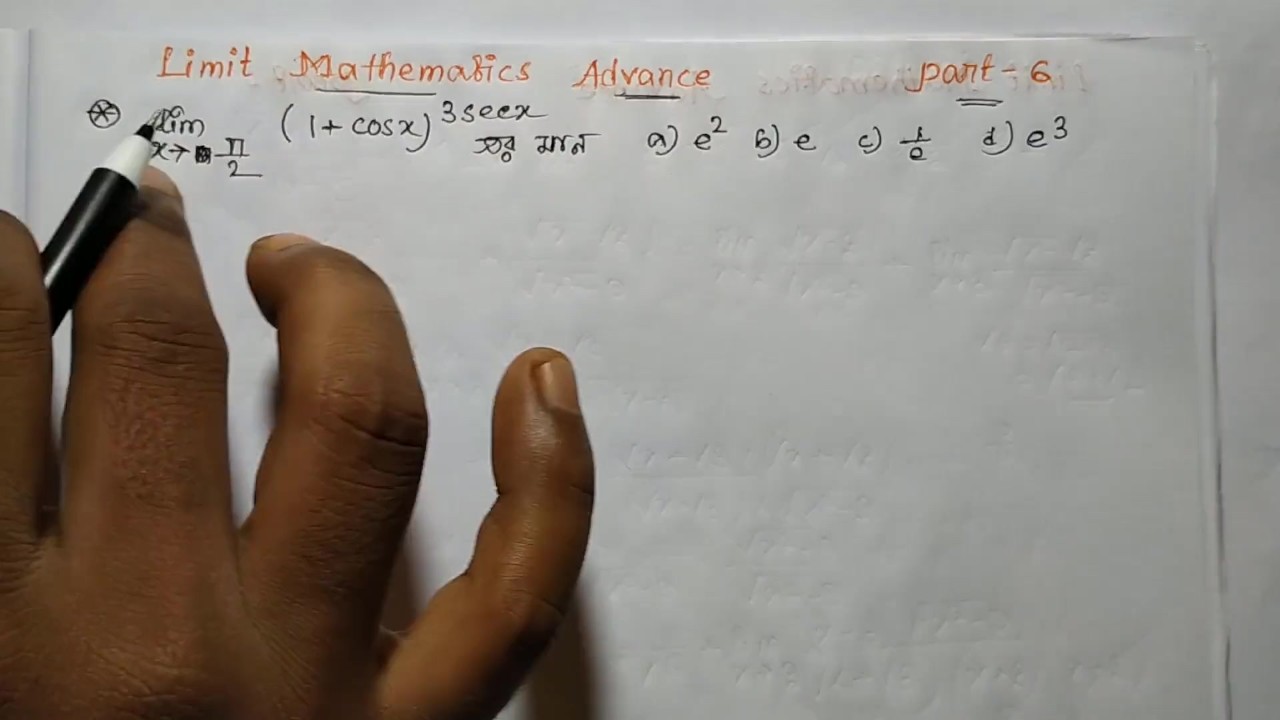 Limit Mathematics Advance part-6
lim x→π/2 (1+cosx)^3secx এর মান a) e^2 b) e c) 1/e d) e^3